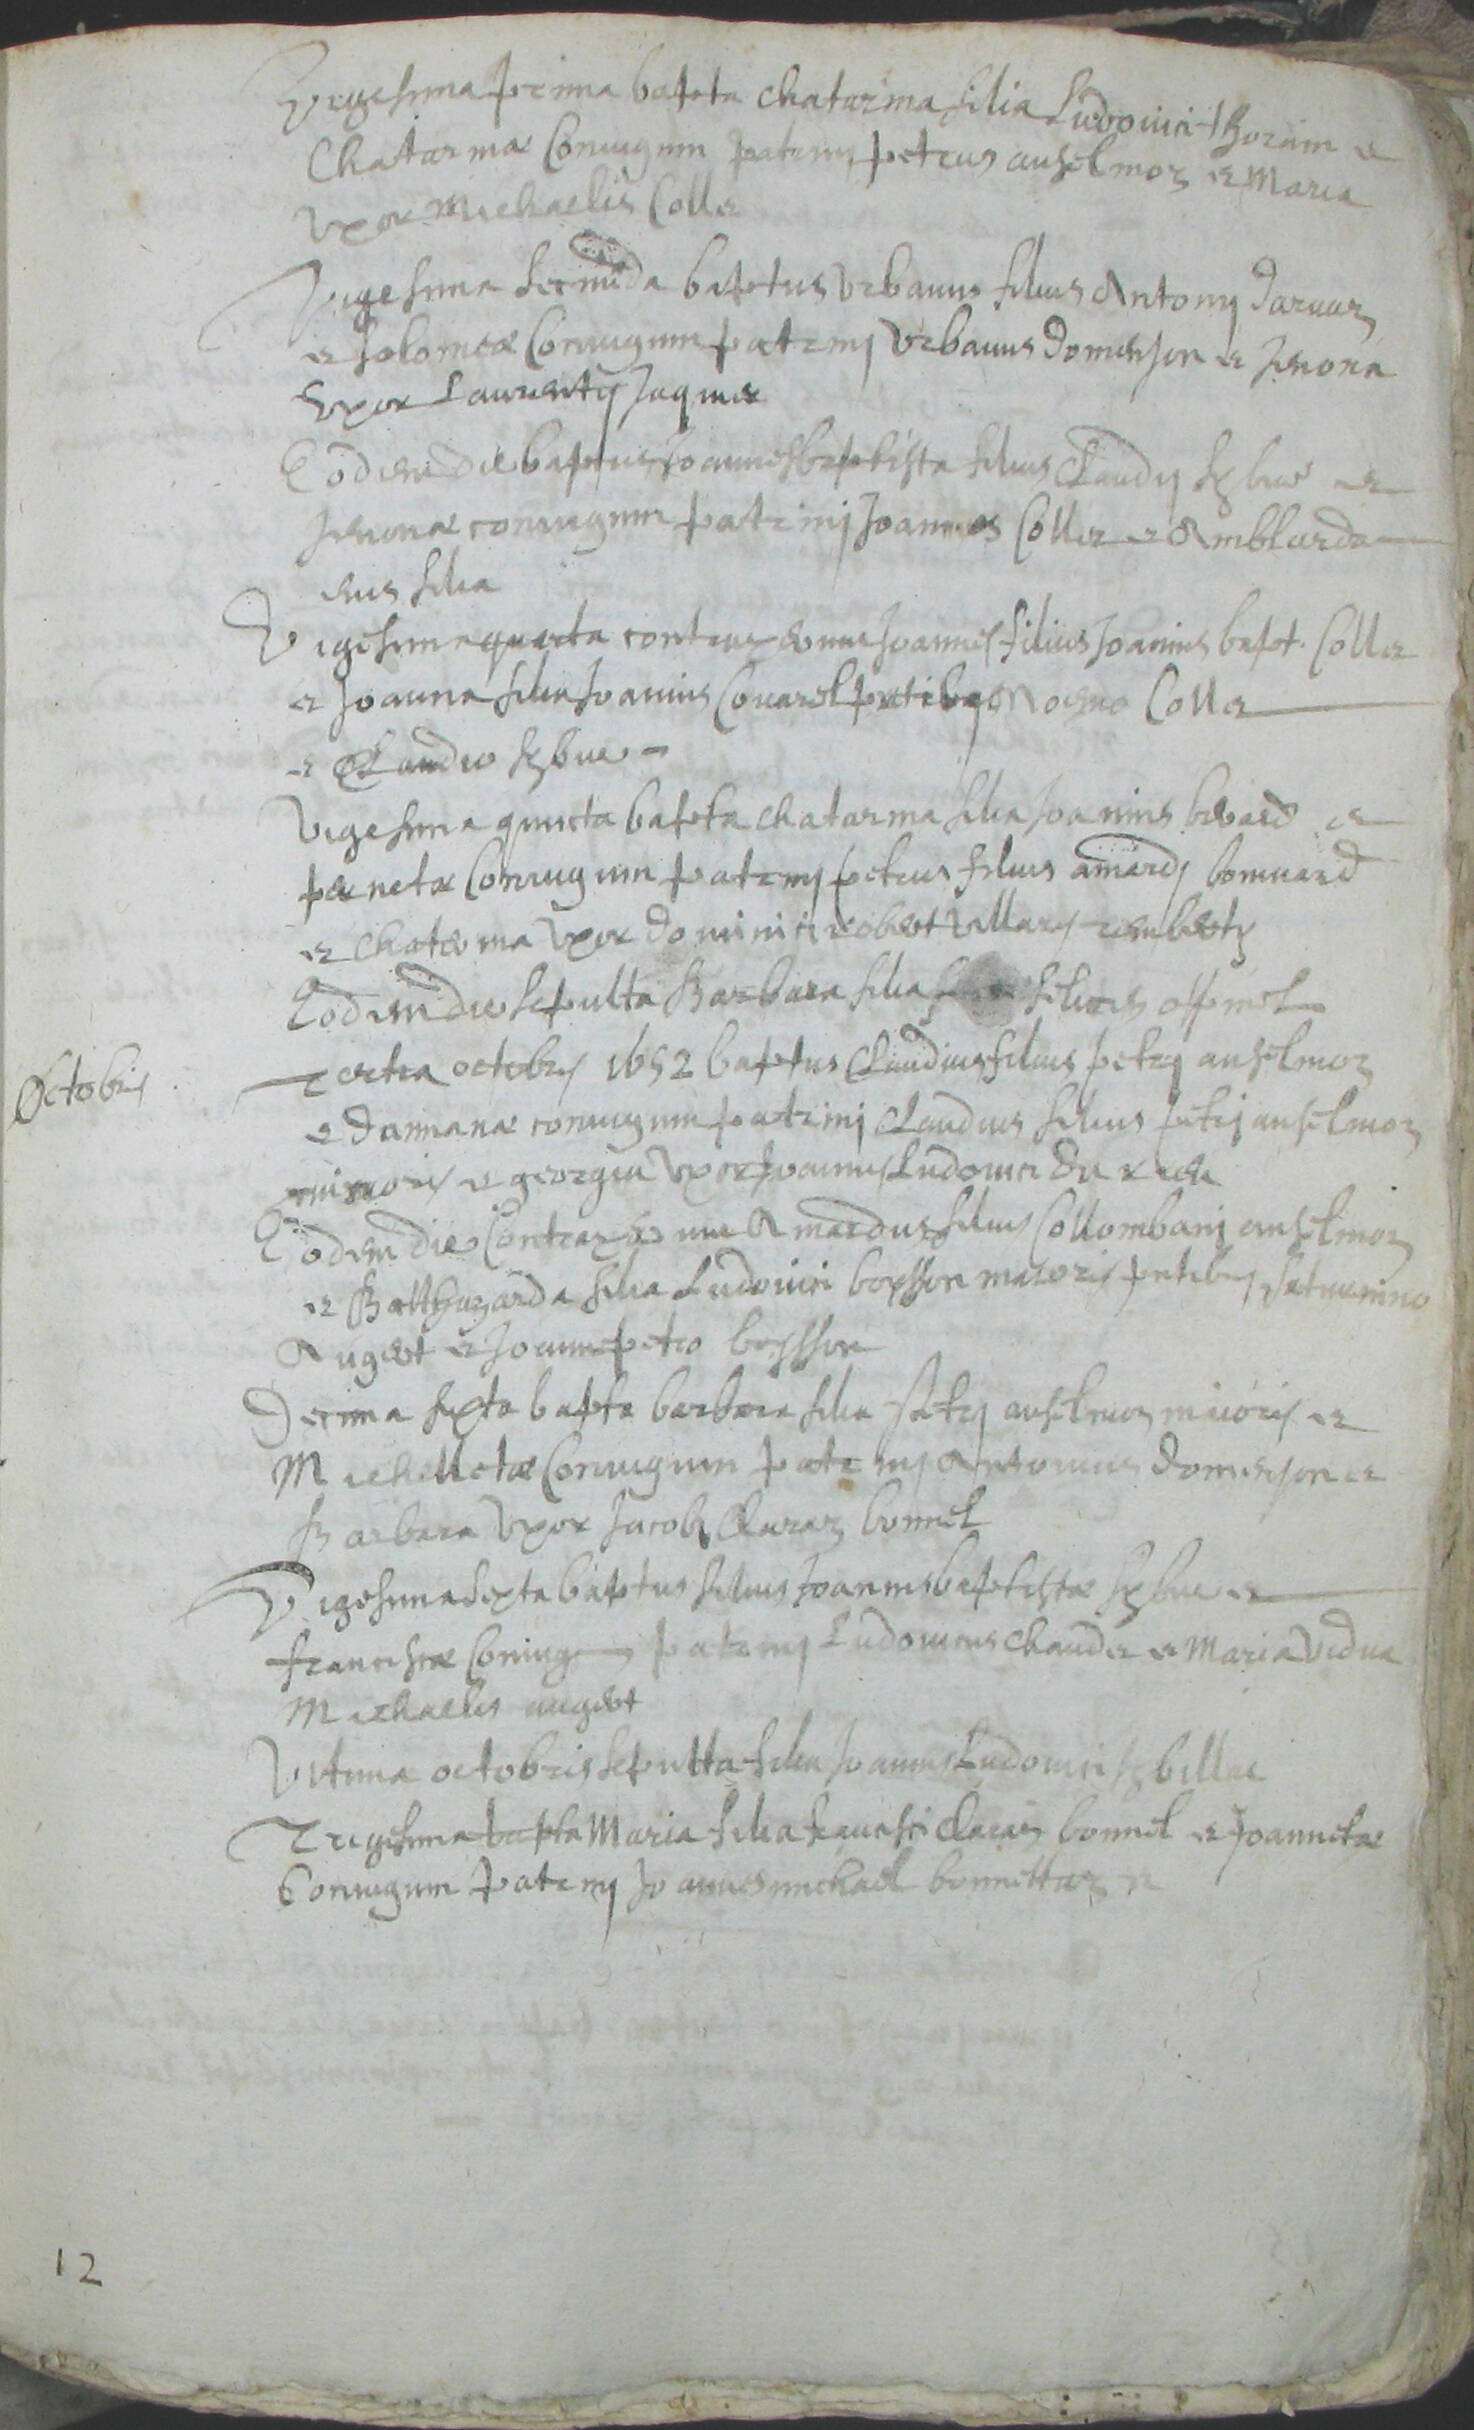 Vigesima prima bapta Chatarina filia Ludovici thorain et
Chatarinæ Coniugum patrinj petrus anselmoz et Maria
Uxor Michaelis Collet
Vigesima secunda baptus Urbanus filius Antonij daruaz
et Jolomeæ Coniugum patrinj Urbanus domenjon et
Uxor Laurentij Jaquier
Eodem die baptus Joannesbaptista filius Claudij
coniugum patrinj Joannes Collet et Amblarda
eius filia
Vigesima quarta contraxerunt Joannes filius Joannis bapt. Collet
et Joanna filia Joannis Couarel pntibus Collet
et Claudio
Vigesima quinta bapta Chatarina filia Joannis et
pernetæ Coniugum patrinj petrus filius amardj bonuard
et Chaterina Uxor dominici robert Villarj
Eodem die sepulta Barbara filia
Octobris
Tertia octobris 1652 baptus Claudius filius petrj anselmoz
et damianæ coniugum patrinj Claudius filius petrj anselmoz
minoris et georgia Uxor Joannis Ludovici
Eodem die Contraxerunt Amardus filius Collombani anselmoz
et Balthazarda filia Ludovici boysson maioris pntibus saturnino
Augert et Joannepetro boysson
Decima sexta bapta barbara filia petrj anselmoz maioris et
Michelletæ Coniugum patrinj Antonius domenjon et
Barbara Uxor Jacobj Claraz bonnel
Vigesima sexta baptus filius Joannisbaptistæ et
franciscæ Coniug patrinj Ludovicus Chaudet et Maria Vidua
Michaelis augert
Ultima octobris sepulta filia Joannis Ludovici
Trigesima bapta Maria filia francisci Claraz bonnel et Joannetæ
Coniugum patrinj Joannes michael bonnettaz et
12